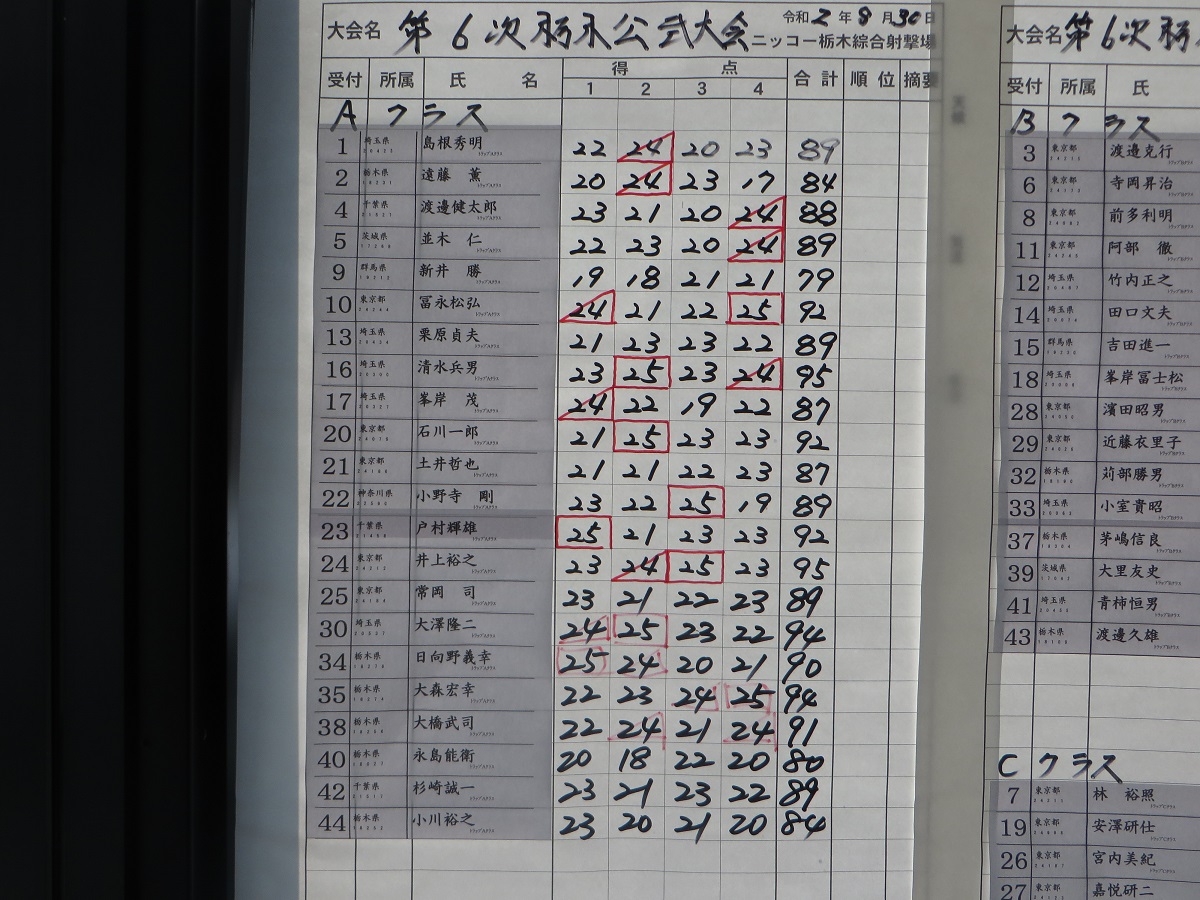 大会名 第6次弱永公式大会 令和2年8月30日
ニッコー栃木綜合射撃場
受付 所属 氏名 得点 合計 順位 摘要
1 2 3 4
Aクラス
1 埼玉県 島根秀明 22 24 20 23 89
2 栃木県 遠藤 薫 20 24 23 17 84
4 千葉県 渡邉健太郎 23 21 20 24 88
5 茨城県 並木 仁 22 23 20 24 89
9 群馬県 新井 勝 19 18 21 21 79
10 東京都 冨永松弘 24 21 22 25 92
13 埼玉県 栗原貞夫 21 23 23 22 89
16 埼玉県 清水兵男 23 25 23 24 95
17 埼玉県 峯岸 茂 24 22 19 22 87
20 東京都 石川一郎 21 25 23 23 92
21 東京都 土井哲也 21 21 22 23 87
22 神奈川県 小野寺 剛 23 22 25 19 89
23 千葉県 戸村輝雄 25 21 23 23 92
24 東京都 井上裕之 23 24 25 23 95
25 東京都 常岡 司 23 21 22 23 89
30 埼玉県 大澤隆二 24 25 23 22 94
34 栃木県 日向野義幸 25 24 20 21 90
35 栃木県 大森宏幸 22 23 24 25 94
38 栃木県 大橋武司 22 24 21 24 91
40 栃木県 永島能衛 20 18 22 20 80
42 千葉県 杉崎誠一 23 21 23 22 89
44 栃木県 小川裕之 23 20 21 20 84
大会名 第6次弱
受付 所属 氏
Bクラス
3 東京都 渡邉克行
6 東京都 寺岡昇治
8 東京都 前多利明
11 東京都 阿部 徹
12 埼玉県 竹内正之
14 埼玉県 田口文夫
15 群馬県 吉田進一
18 埼玉県 峯岸冨士松
28 東京都 濱田昭男
29 東京都 近藤衣里子
32 栃木県 苅部勝男
33 埼玉県 小室貴昭
37 栃木県 茅嶋信良
39 茨城県 大里友史
41 埼玉県 青柿恒男
43 栃木県 渡邉久雄
Cクラス
7 東京都 林 裕照
19 東京都 安澤研仕
26 東京都 宮内美紀
27 東京都 嘉悦研二